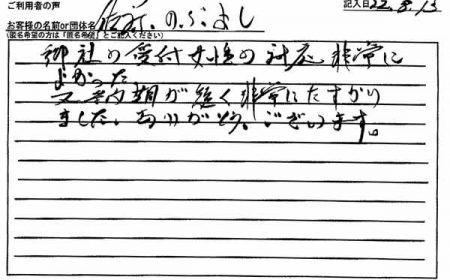 ご利用者の声
記入日 22.8.13
お客様の名前or団体名
(匿名希望の方は「匿名希望」とご記入ください)
のぶよし
御社の受付女性の対応非常に
よかった
又納期が短く非常にたすかり
ました。ありがとうございます。